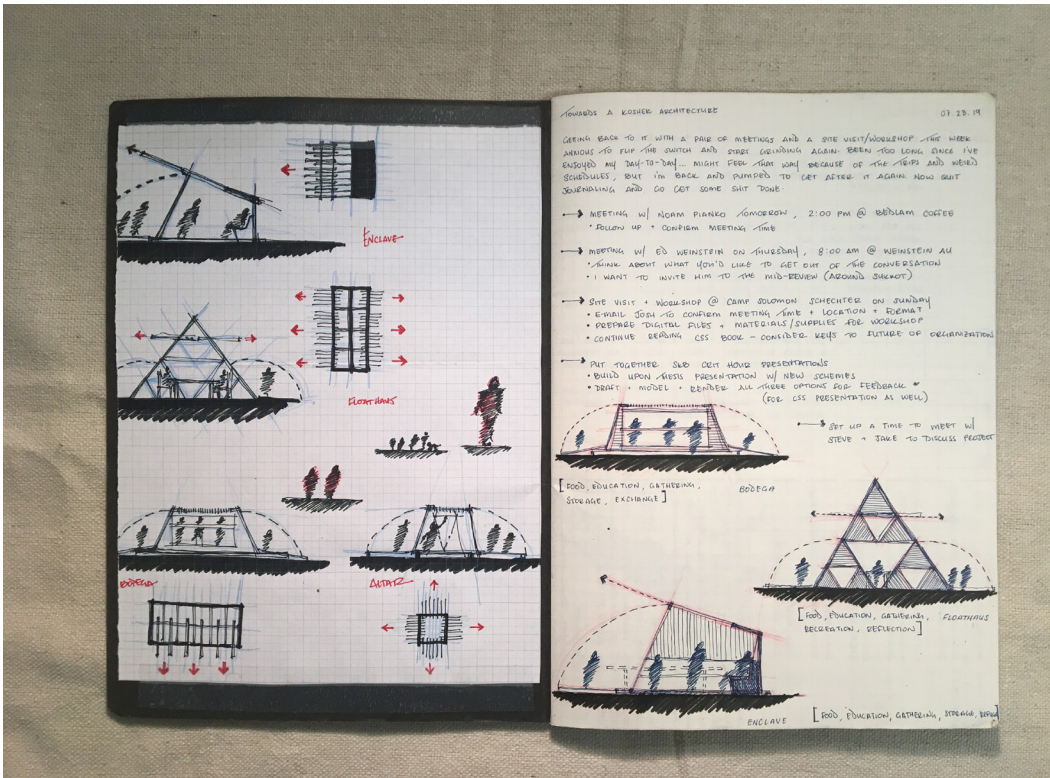 ENCLAVE
FLOATHAUS
BODEGA
ALTAR
TOWARDS A KOSHER ARCHITECTURE
07.23.19
GEEING BACK TO IT WITH A PAIR OF MEETINGS AND A SITE VISIT/WORKSHOP THIS WEEK.
ANXIOUS TO FLIP THE SWITCH AND START GRINDING AGAIN. BEEN TOO LONG SINCE I'VE
ENJOYED MY DAY-TO-DAY... MIGHT FEEL THAT WAY BECAUSE OF THE TRIPS AND WEIRD
SCHEDULES, BUT I'M BACK AND PUMPED TO GET AFTER IT AGAIN. NOW QUIT
JOURNALING AND GO GET SOME SHIT DONE.
→ MEETING W/ NOAM PIANKO TOMORROW, 2:00 PM @ BEDLAM COFFEE
• FOLLOW UP + CONFIRM MEETING TIME
→ MEETING W/ ED WEINSTEIN ON THURSDAY, 8:00 AM @ WEINSTEIN AU
• THINK ABOUT WHAT YOU'D LIKE TO GET OUT OF THE CONVERSATION
• I WANT TO INVITE HIM TO THE MID-REVIEW (AROUND SUKKOT)
→ SITE VISIT + WORKSHOP @ CAMP SOLOMON SCHECHTER ON SUNDAY
• E-MAIL JOSH TO CONFIRM MEETING TIME + LOCATION + FORMAT
• PREPARE DIGITAL FILES + MATERIALS/SUPPLIES FOR WORKSHOP
• CONTINUE READING CSS BOOK - CONSIDER KEYS TO FUTURE OF ORGANIZATION
→ PUT TOGETHER SKB CRIT HOUR PRESENTATIONS
• BUILD UPON THESIS PRESENTATION W/ NEW SCHEMES
• DRAFT + MODEL + RENDER ALL THREE OPTIONS FOR FEEDBACK *
(FOR CSS PRESENTATION AS WELL)
→ SET UP A TIME TO MEET W/
STEVE + JAKE TO DISCUSS PROJECT
[FOOD, EDUCATION, GATHERING,
STORAGE, EXCHANGE]
BODEGA
[FOOD, EDUCATION, GATHERING,
RECREATION, REFLECTION]
FLOATHAUS
ENCLAVE
[FOOD, EDUCATION, GATHERING, STORAGE,